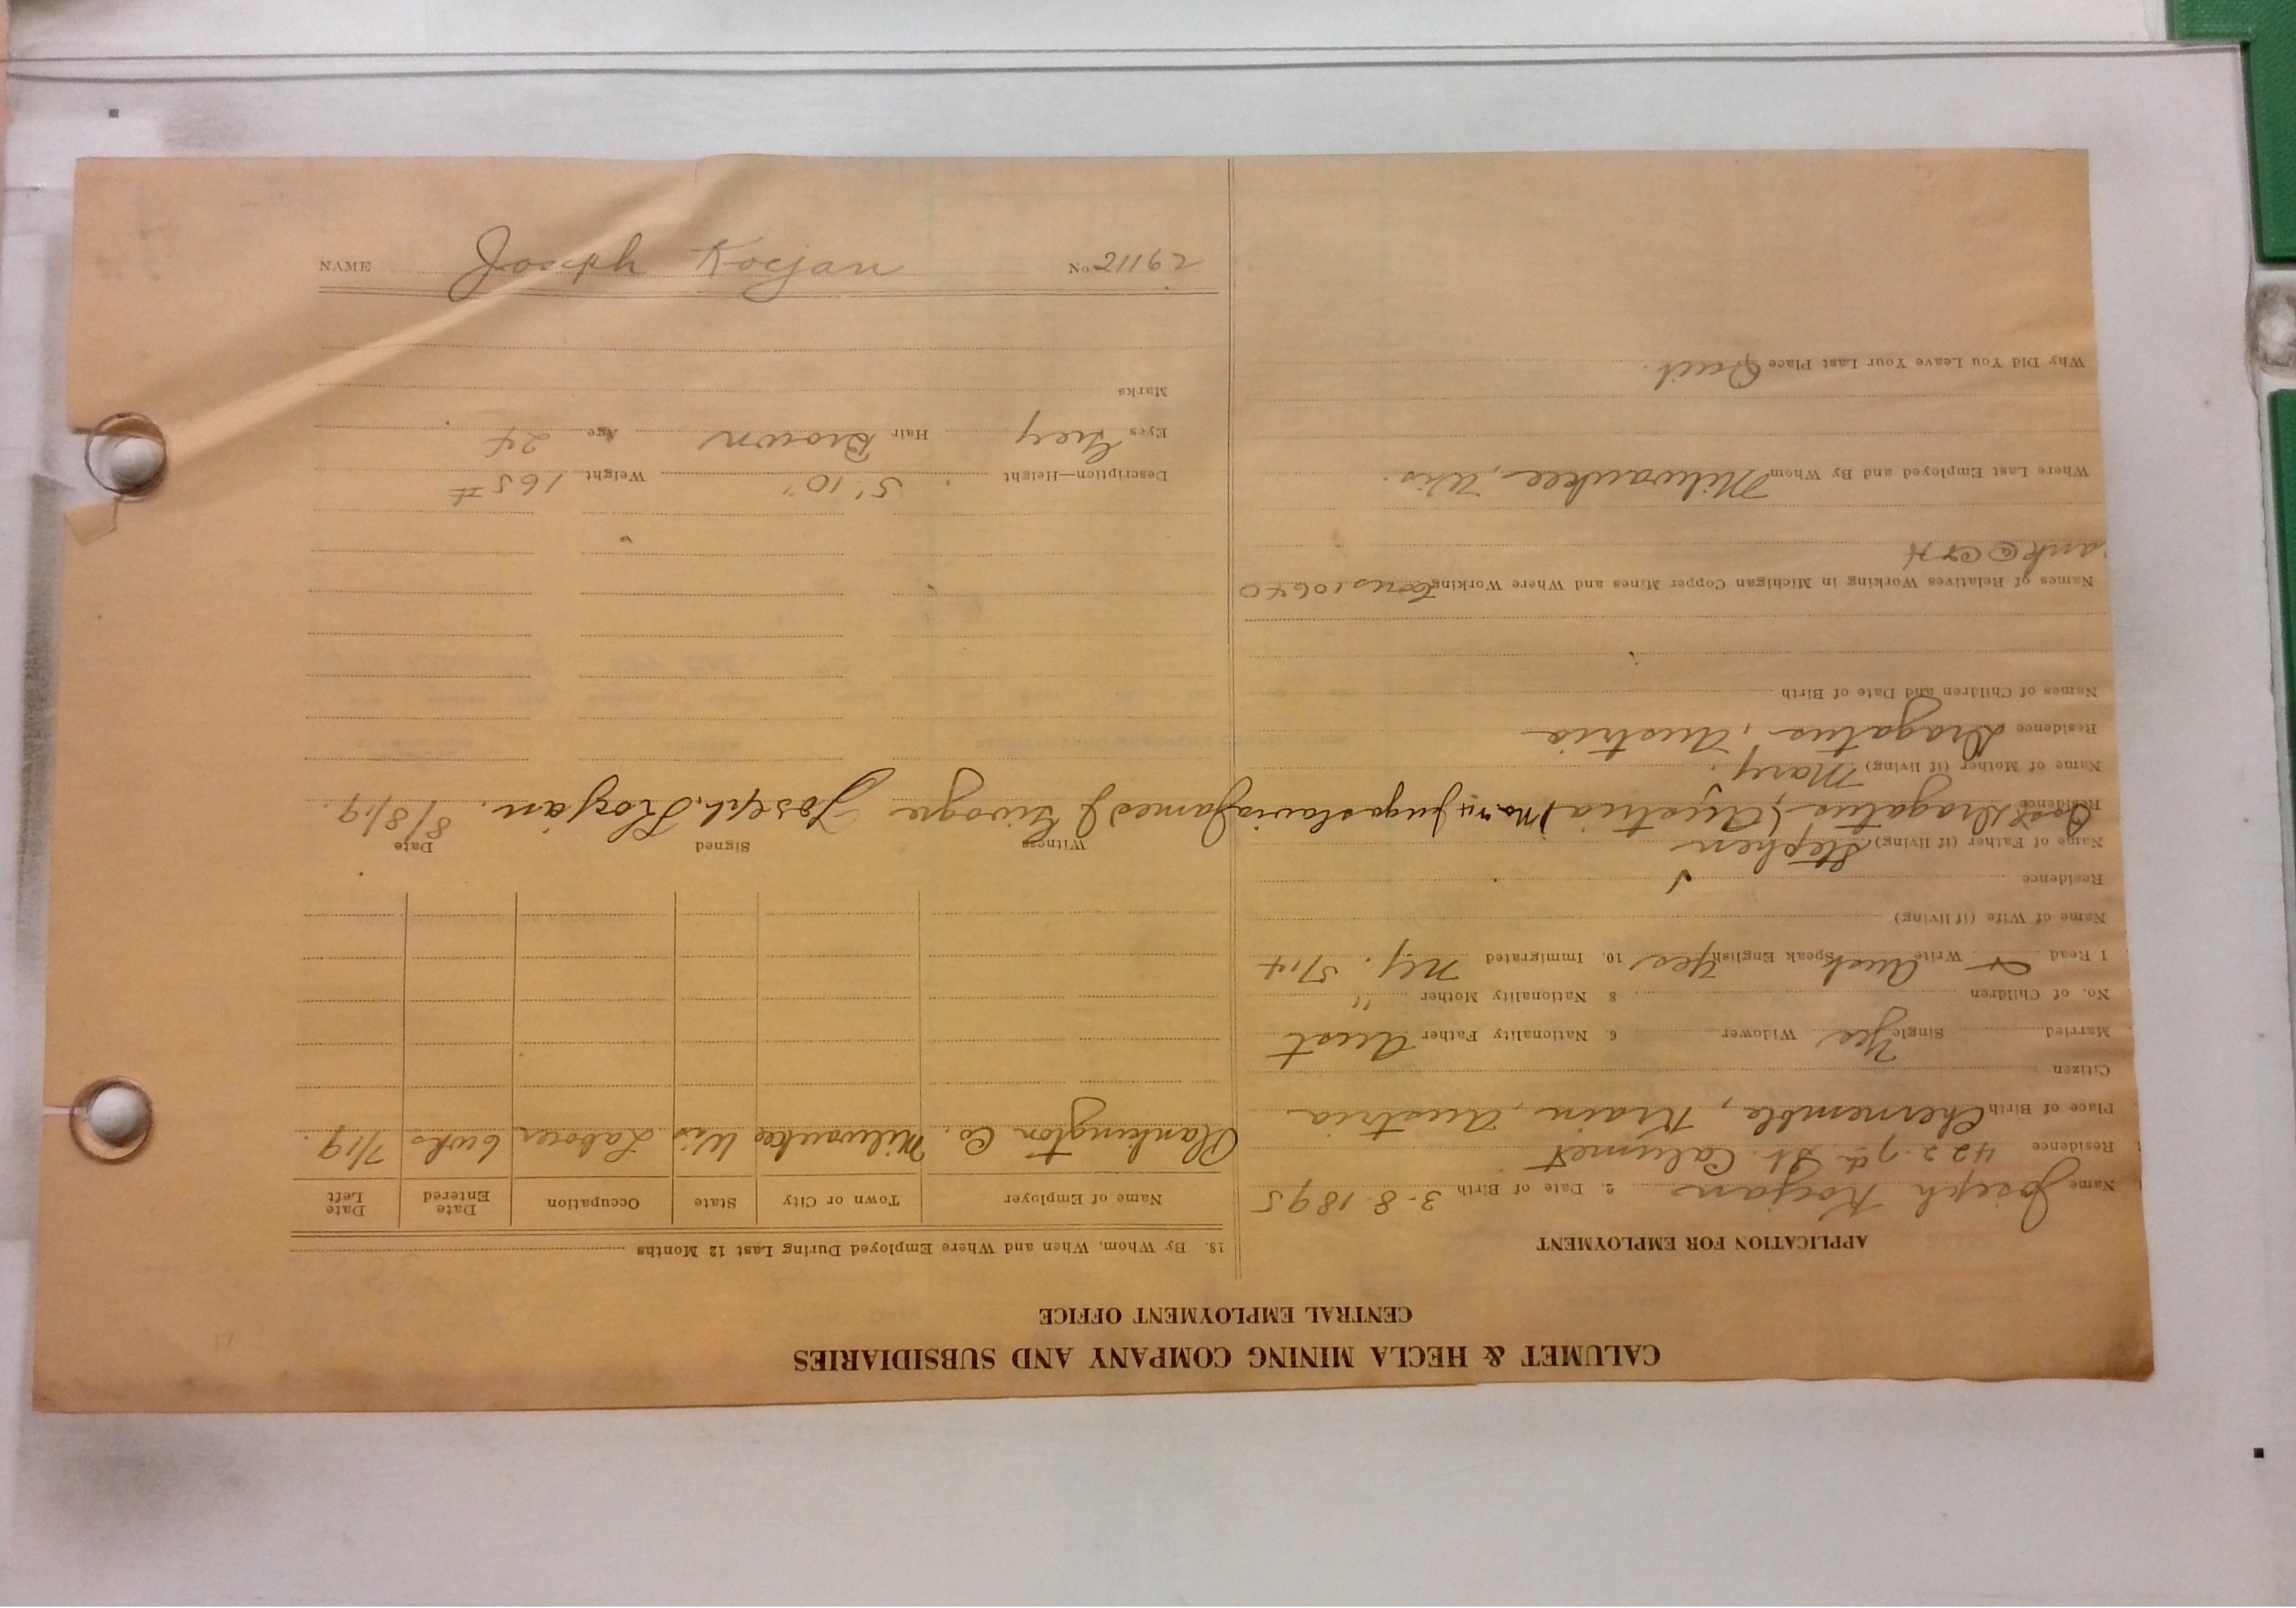 CALUMET & HECLA MINING COMPANY AND SUBSIDIARIES
CENTRAL EMPLOYMENT OFFICE
APPLICATION FOR EMPLOYMENT
Name Joseph Kocjan 2. Date of Birth 3-8-1895
Residence 422-7th St. Calumet
Place of Birth Chernemble, Krain, Austria
Citizen
Married Single Yes Widower 6. Nationality Father Aust
No. of Children 8 Nationality Mother "
I Read Write Aust Speak English Yes 10. Immigrated N.Y. 5/14
Name of Wife (if living)
Residence
Name of Father (if living) Stephen
Residence Post Dragatus (Austria) Now Jugoslavia
Name of Mother (if living) Mary
Residence Dragatus, Austria
Names of Children and Date of Birth
Names of Relatives Working in Michigan Copper Mines and Where Working 10640
C&H
Where Last Employed and By Whom Milwaukee, Wis.
Why Did You Leave Your Last Place Quit.
18. By Whom, When and Where Employed During Last 12 Months
Name of Employer Town or City State Occupation Date Entered Date Left
Plankington Co. Milwaukee Wis Laborer 6 wks 7/19.
Witness Signed Date
James J. Joseph Kocjan. 8/8/19.
Description—Height 5' 10" Weight 165#
Eyes Grey Hair Brown Age 24
Marks
NAME Joseph Kocjan No. 21162